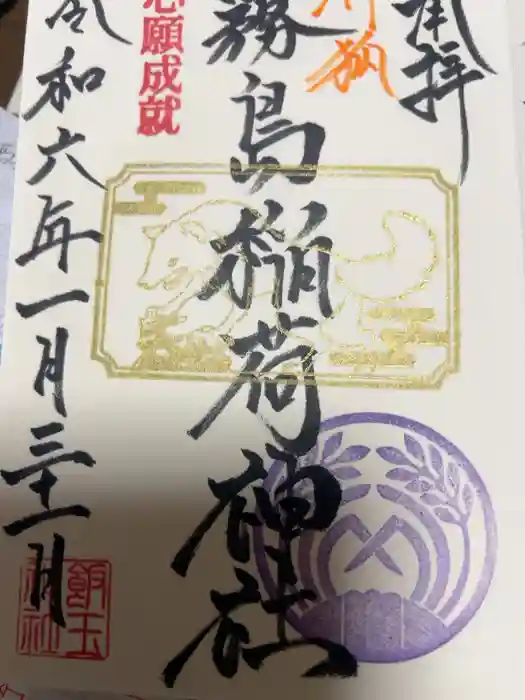 奉拝
川狐
霧島稲荷神社
心願成就
令和六年一月三十一日